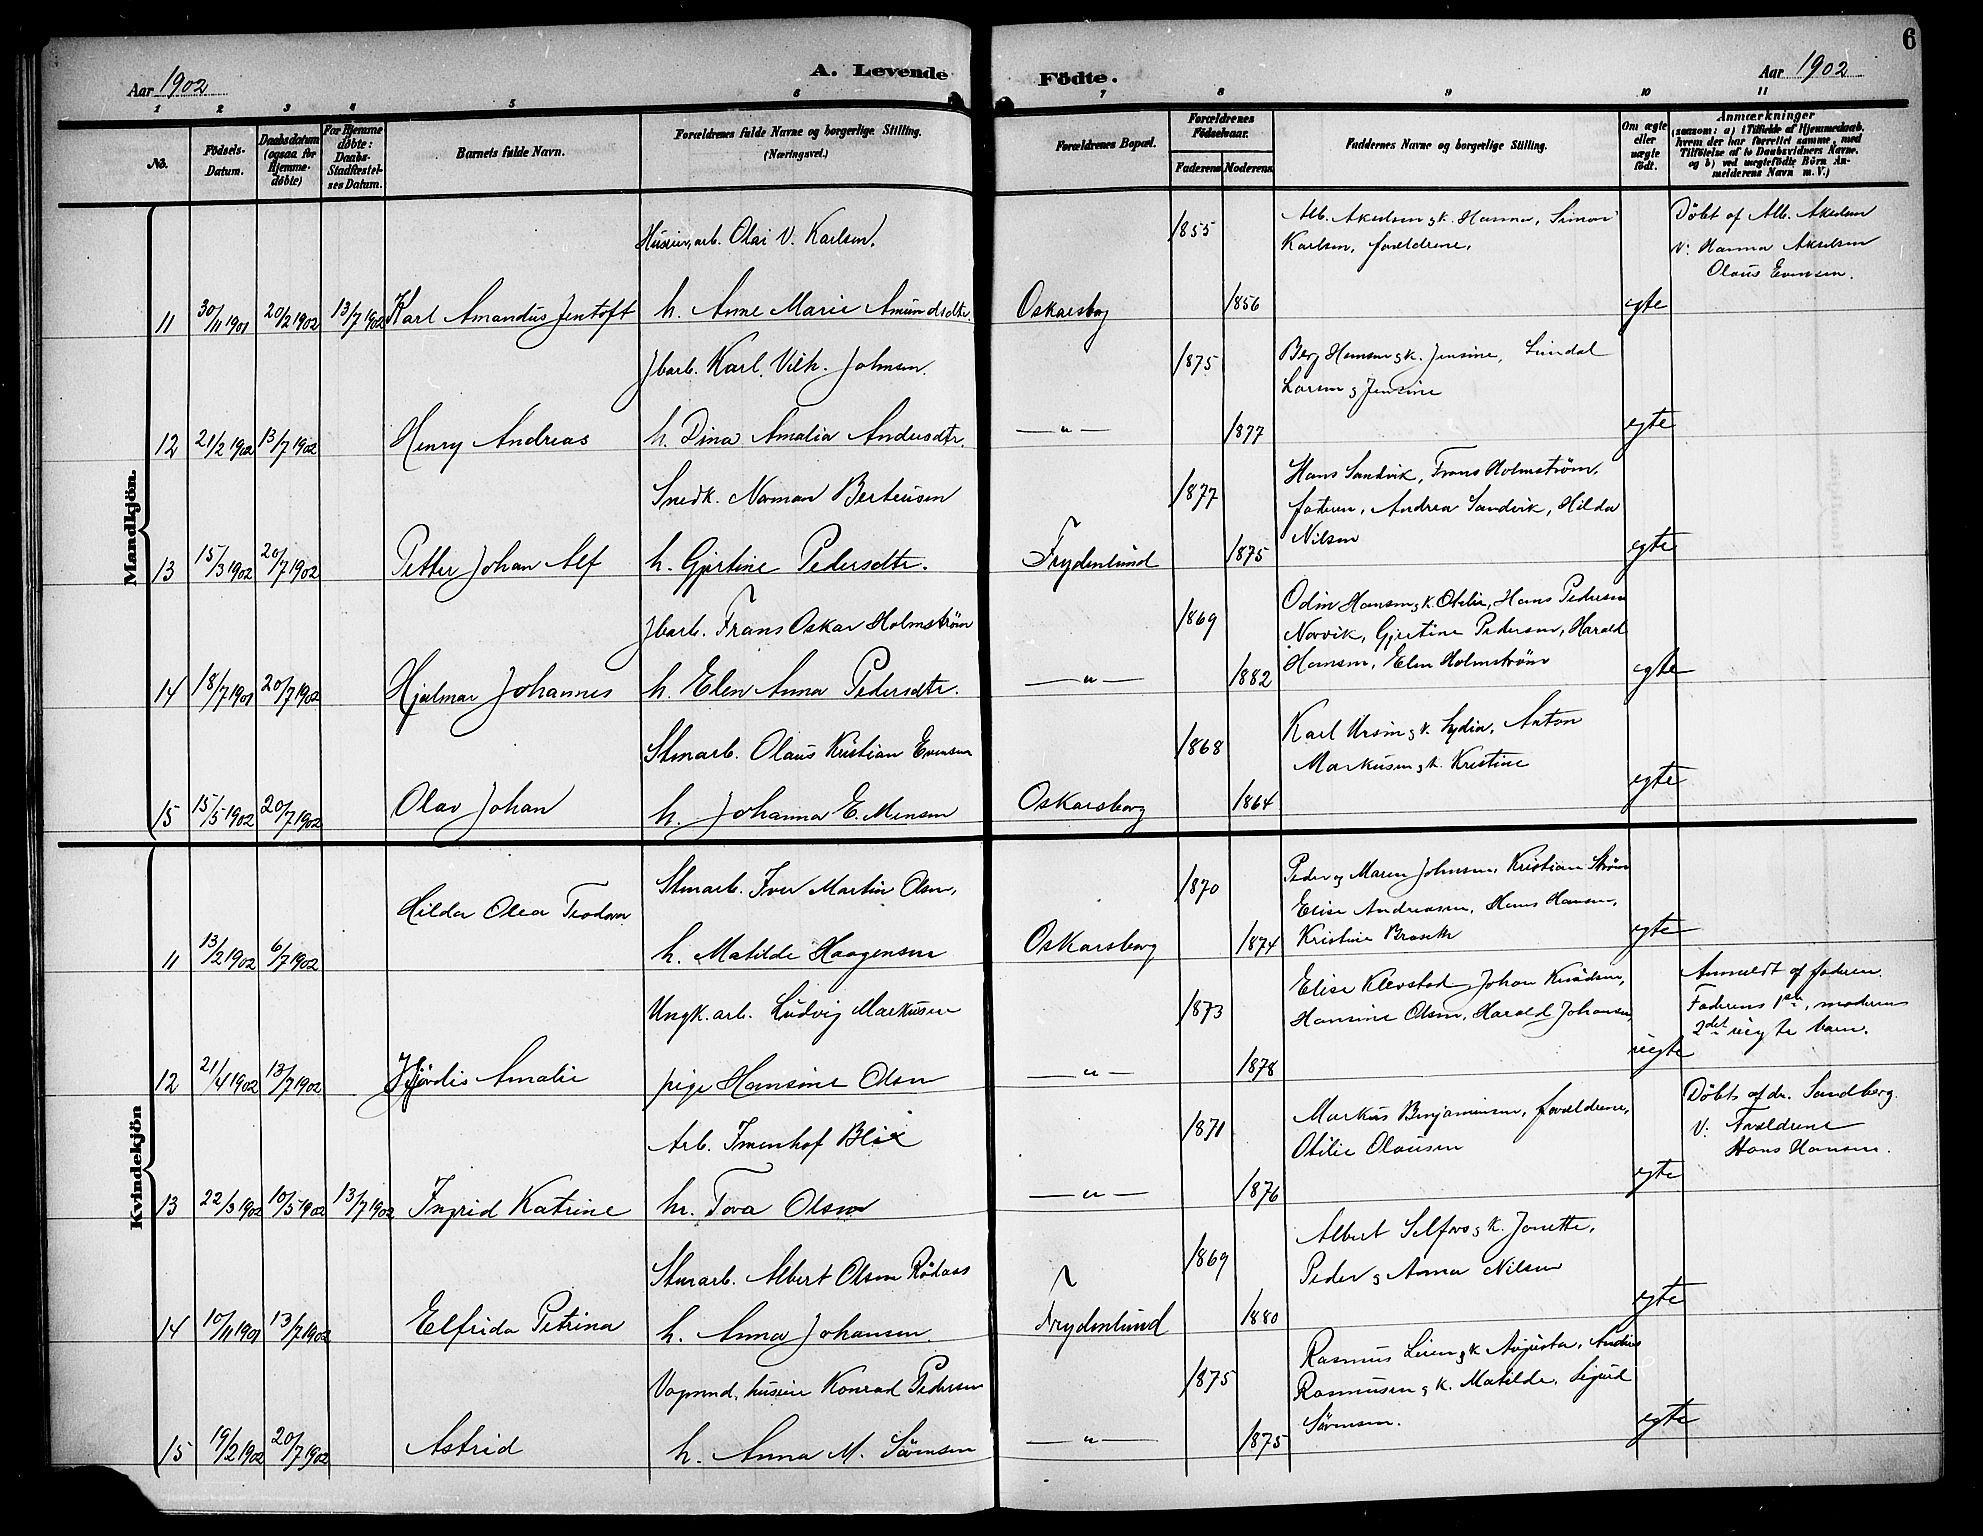 6
Aar 1902
A. Levende Fødte.
Aar 1902
1 2 3 4 5 6 7 8 9 10 11
No.
Fødsels-Datum.
Daabsdatum (ogsaa for Hjemme-døbte)
For Hjemme døbte: Daabs-Stadfæstel-ses Datum.
Barnets fulde Navn.
Forældrenes fulde Navne og borgerlige Stilling. (Næringsvei.)
Forældrenes Bopæl.
Forældrenes Fødselsaar.
Faderens
Moderens
Faddernes Navne og borgerlige Stilling.
Om ægte eller uægte født.
Anmærkninger
(saasom: a) i Tilfælde af Hjemmedaab, hvem der har forrettet samme, med Tilføielse af to Daabsvidners Navne, og b) ved uægtefødte Børn An-melderens Navn m. V.)
Mandkjön.
Huseier, arb. Olai V. Karlsen.
1855
Alb. Akselsen g k. Hanna, Simon
Karlsen, forældrene.
Döbt af Alb. Akselsen
v: Hanna Akselsen
Olaus Evensen.
11 30/11 1901 20/2 1902 13/7 1902 Karl Amandus Jentoft h. Anne Marie Amundsdtr. Oskarsborg 1856 egte
Jbarb. Karl. Vilh. Johnsen.
1875
Berg Hansen g k. Jensine, Lindal
Larsen g Jensine
12 21/2 1902 13/7 1902 Henry Andreas h. Dina Amalia Andersdtr. — " — 1877 egte
Snedk. Norman Berteusen
1877
Hans Sandvik, Frans Holmström,
faderen, Andrea Sandvik, Hilda
Nilsen
13 15/3 1902 20/7 1902 Petter Johan Alf h. Gjertine Pedersdtr. Frydenlund 1875 egte
Jbarb. Frans Oskar Holmström
1869
Odin Hansen g k. Otilie, Hans Pedersen
Norvik, Gjertine Pedersen, Harald
Hansen, Elen Holmström
14 18/7 1901 20/7 1902 Hjalmar Johannes h. Elen Anna Pedersdtr. — " — 1882 egte
Stenarb. Olaus Kristian Evensen
1868
Karl Ursin g k. Lydia, Anton
Markusen g k. Kristine
15 15/5 1902 20/7 1902 Olav Johan h. Johanna E. Monsen Oskarsborg 1864 egte
Kvindekjön
Stenarb. Iver Martin Olsen,
1870
Peder og Maren Johnsen, Kristian Ström
Elise Andreasen, Hans Hansen,
Kristine Braseth
11 13/2 1902 6/7 1902 Hilda Olea Teodora h. Matilde Haagensen Oskarsborg 1874 egte
Ungk. arb. Ludvig Markusen
1873
Elise Klevstad, Johan Knudsen,
Hansine Olsen, Harald Johansen,
Anmeldt af faderen.
Faderens 1ste, moderens
2det uegte barn.
12 21/4 1902 13/7 1902 Hjördis Amalie pige Hansine Olsen — " — 1878 uegte
Arb. Imenhof Blix
1871
Markus Benjaminsen, forældrene,
Otilie Olausen
Döbt af dr. Sandberg.
V: Forældrene
Hans Hansen.
13 22/3 1902 10/5 1902 13/7 1902 Ingrid Katrine h. Tova Olsen — " — 1876 egte
Stenarb. Albert Olsen Rödaas
1869
Albert Selfors g k. Jonette,
Peder g Anna Nilsen
14 10/11 1901 13/7 1902 Elfrida Petrina h. Anna Johansen Frydenlund 1880 egte
Vognmd. huseier Konrad Pedersen
1875
Rasmus Leren g k Augusta, Andreas
Rasmussen g k. Matilde, Sigurd
Sörensen.
15 19/2 1902 20/7 1902 Astrid h. Anna M. Sörensen — " — 1875 egte